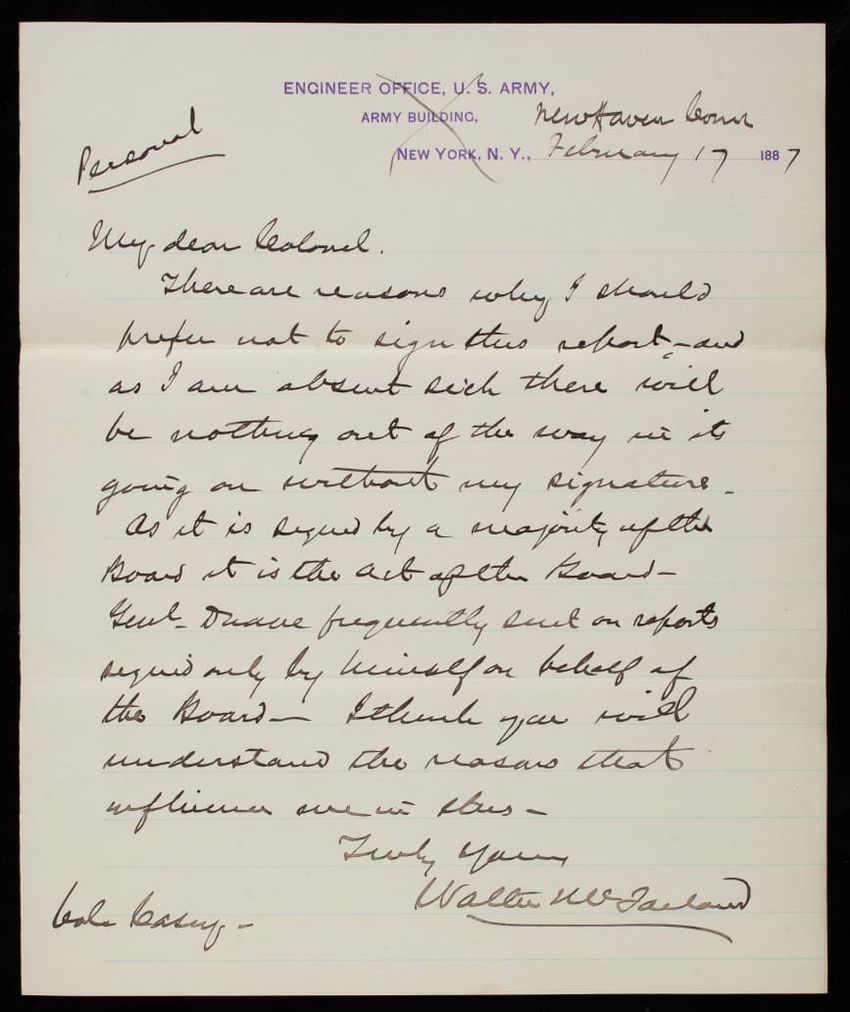 ENGINEER OFFICE, U. S. ARMY,
ARMY BUILDING,
New Haven Conn
Personal
NEW YORK, N. Y., February 17 1887
My dear Colonel.
There are reasons why I should
prefer not to sign this report - and
as I am absent sick there will
be nothing out of the way in its
going on without my signature -
As it is signed by a majority of the
Board it is the act of the Board -
Genl. Duane frequently sent on reports
signed only by himself on behalf of
the Board - I think you will
understand the reasons that
influence me in this -
Truly Yours
Walter McFarland
Col. Casey -